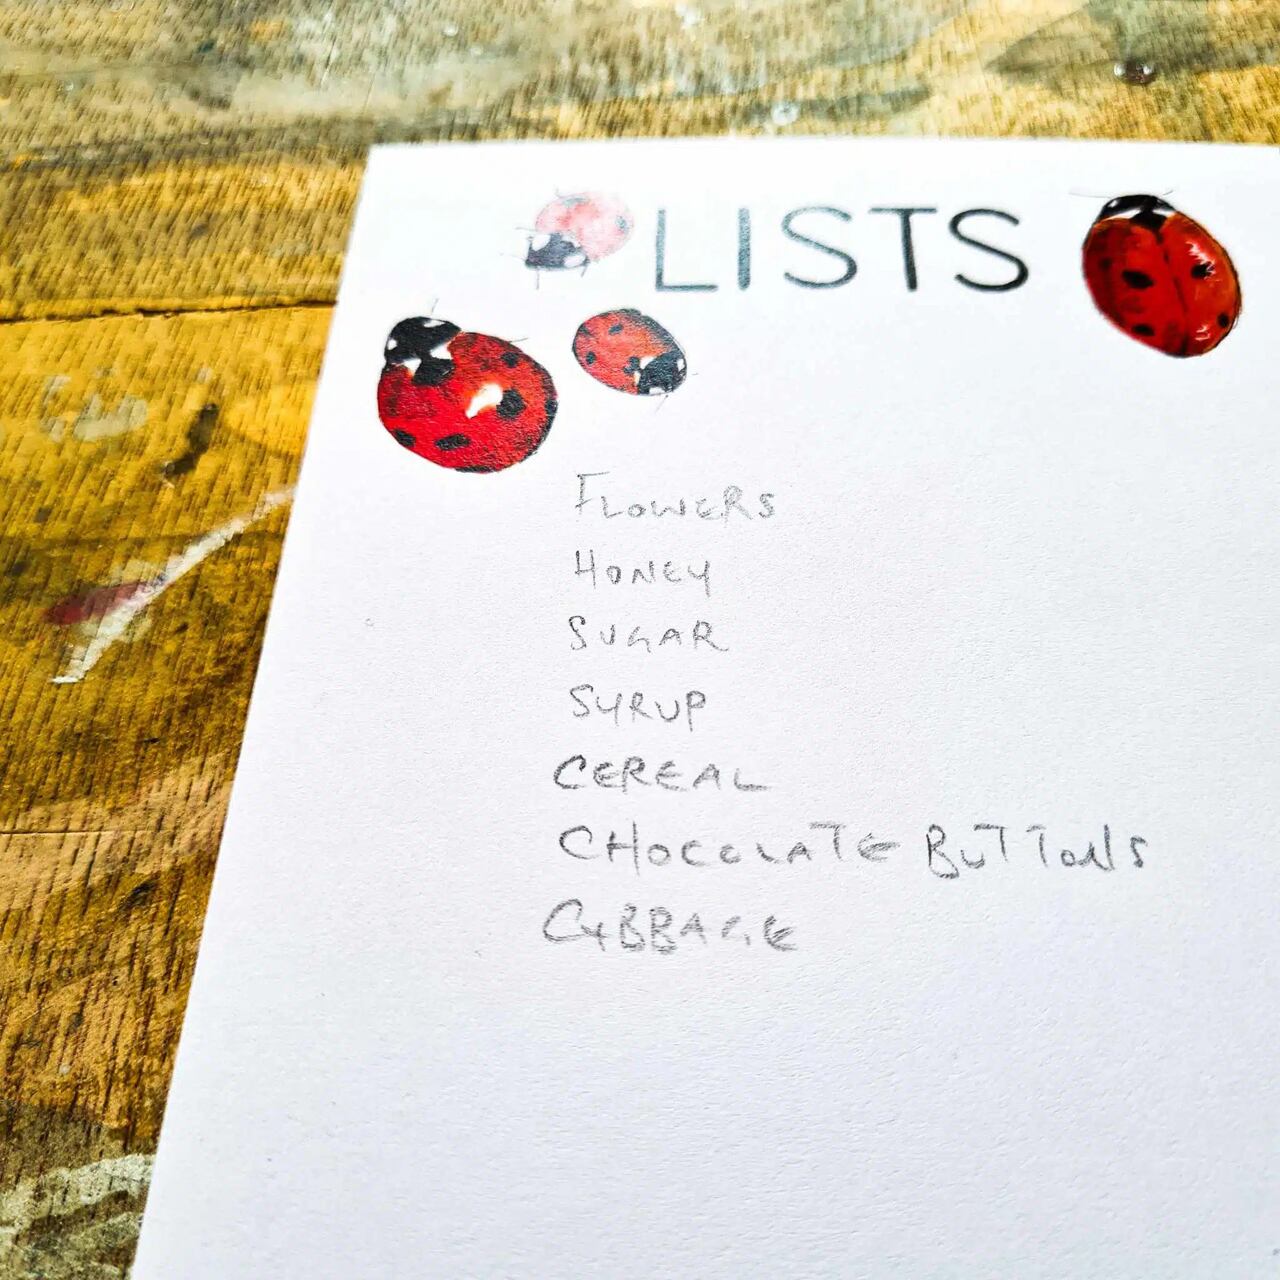 LISTS
FLOWERS
HONEY
SUGAR
SYRUP
CEREAL
CHOCOLATE BUTTONS
CABBAGE